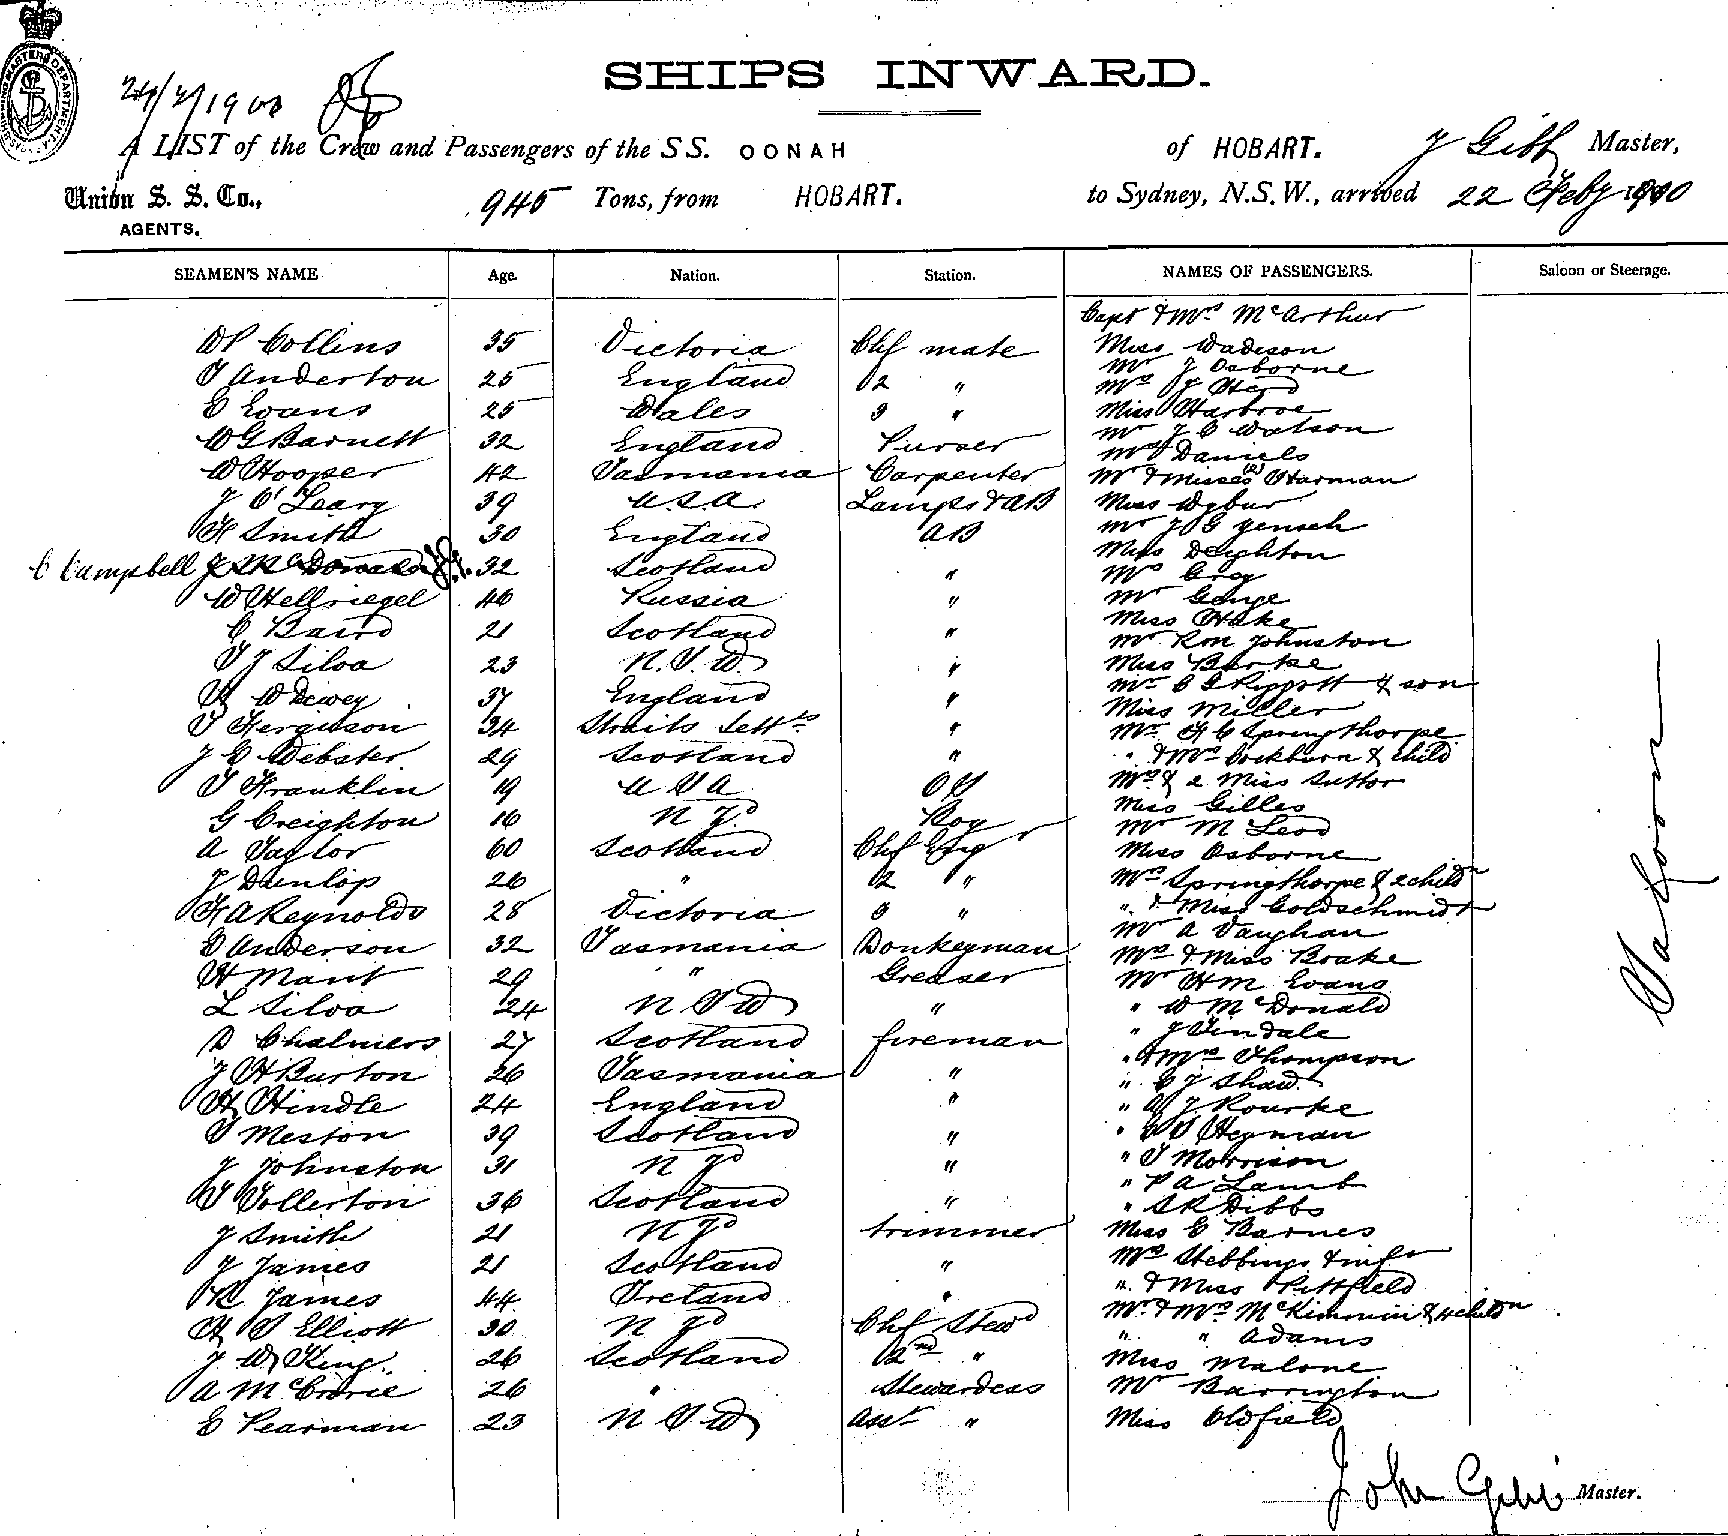 SHIPS INWARD.
A LIST of the Crew and Passengers of the SS. OONAH of HOBART. J Gibb Master,
Union S. S. Co., 945 Tons, from HOBART. to Sydney, N.S.W., arrived 22 Feby 1900
AGENTS.
SEAMEN'S NAME Age. Nation. Station. NAMES OF PASSENGERS. Saloon or Steerage.
Capt & Mrs McArthur
Collins 35 Victoria Chf mate Miss Wadeson
T Anderton 25 England 2 " Mr J Osborne
Mrs J Herd
E Evans 25 Wales 3 " Miss Harbroe
W G Barnett 32 England Purser Mr J C Watson
Mrs Daniels
W Hooper 42 Tasmania Carpenter Mr & Misses (2) Harman
J O'Leary 39 U.S.A. Lamps & AB Miss Wybur
H Smith 30 England AB Mr J G Jensch
Miss Deighton
C Campbell J McDonald J.G. 32 Scotland " Mrs Grey
W Hellriegel 40 Russia " Mr George
C Baird 21 Scotland " Miss Hake
Mr Ron Johnston
T J Silva 23 N.S.W. " Miss Burke
H W Dewey 37 England " Mr C G Rippott & son
Miss Miller
T Ferguson 34 Straits Settts " Mr H C Springthorpe
J C Webster 29 Scotland " " & Mrs Cockburn & child
T Franklin 19 U S A OS Mrs & 2 Miss Suttor
Miss Gilles
G Creighton 16 N Zd Boy Mr McLeod
A Taylor 60 Scotland Chf Engr Miss Osborne
J Dunlop 26 " 2 " Mrs Springthorpe & 2 childn
H A Reynolds 28 Victoria 3 " " & Miss Goldschmidt
Mr A Vaughan
E Anderson 32 Tasmania Donkeyman Mrs & Miss Brake
H Mant 29 " Greaser Mr H M Evans
L Silva 24 N S W " " W McDonald
D Chalmers 27 Scotland fireman " J Tindale
" & Mrs Thompson
J H Burton 26 Tasmania " " C J Shaw
H Hindle 24 England " " W J Rourke
T Meston 39 Scotland " " Heyman
J Johnston 31 N Zd " " T Morrison
" P A Lamb
T Tollerton 36 Scotland " " S R Dibbs
J Smith 21 N Zd trimmer Miss E Barnes
Mrs Stebbings & infr
J James 21 Scotland " " & Miss Pittfield
R James 44 Ireland " Mr & Mrs McKimmin & 4 childn
H S Elliott 30 N Zd Chf Stewd " " Adams
J W King 26 Scotland 2nd " Miss Malone
A McCrorie 26 " Stewardess Mr Barrington
E Pearman 23 N S W Asst " Miss Oldfield
Saloon
John Gibb Master.